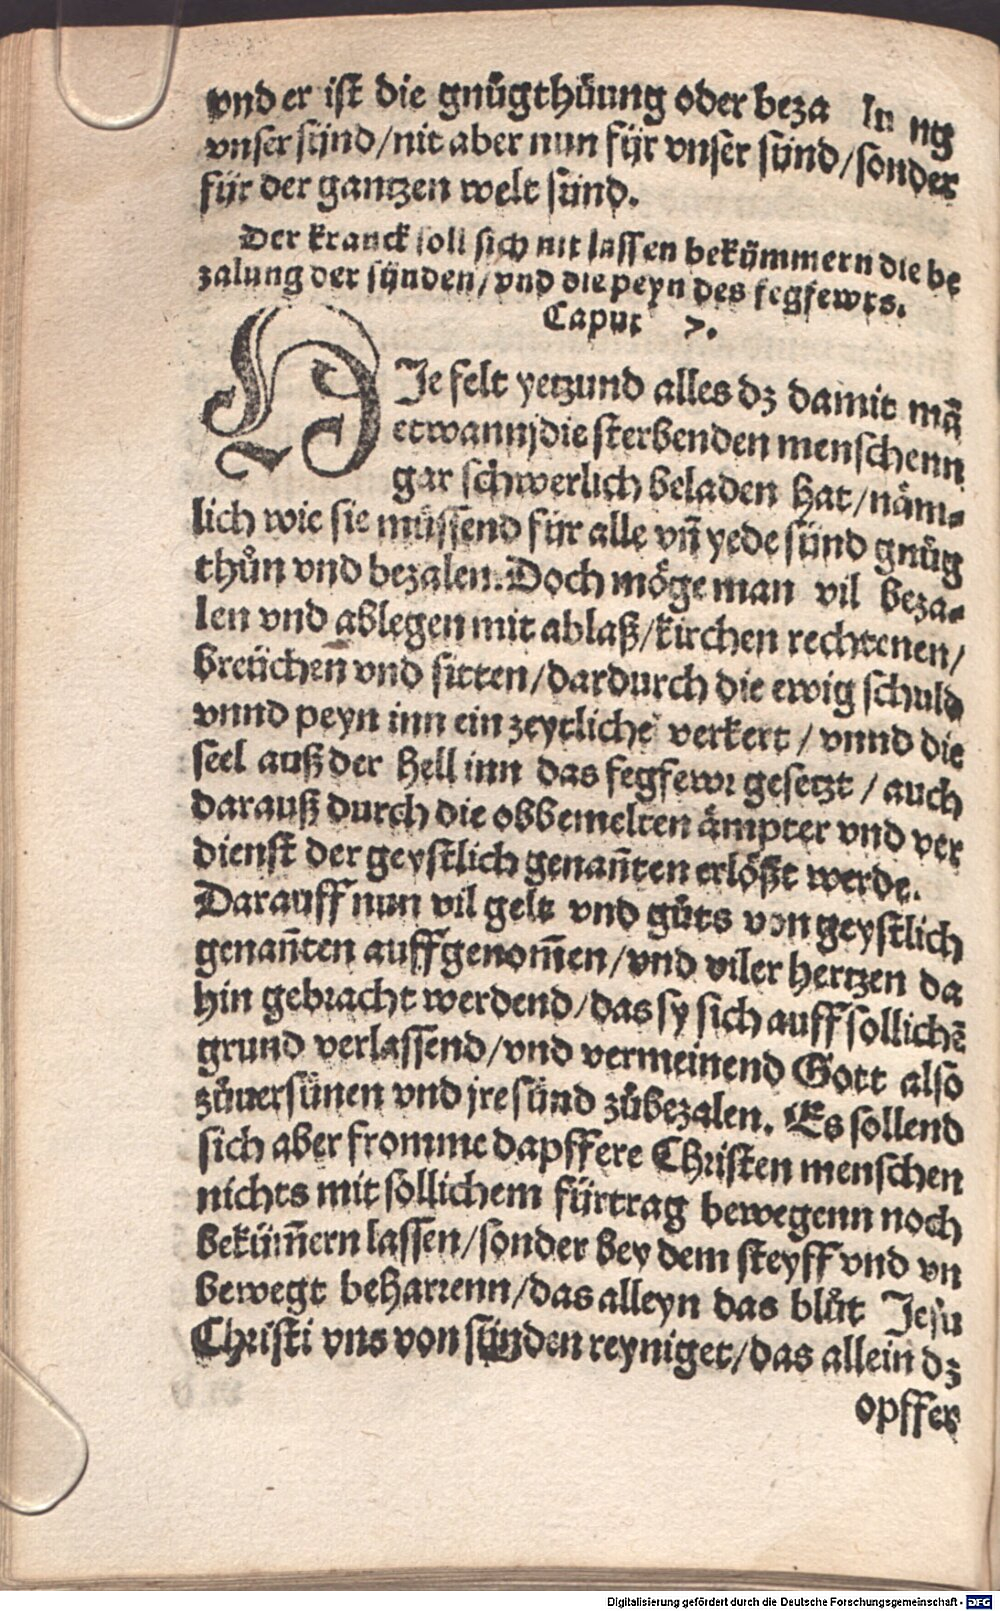 vnd er ist die gnůgthůung oder beza lu ng
vnser sünd/nit aber nun für vnser sünd/sonder
für der gantzen welt sünd.
Der kranck soll sich nit lassen bekümmern die be
zalung der sünden/vnd die peyn des fegfewrs.
Caput 7.
HJe felt yetzund alles dz damit mā
etwann die sterbenden menschenn
gar schwerlich beladen hat/näm-
lich wie sie müssend für alle vñ yede sünd gnůg
thůn vnd bezalen. Doch möge man vil beza-
len vnd ablegen mit ablaß/kirchen rechtenen/
breüchen vnd sitten/dardurch die ewig schuld
vnnd peyn inn ein zeytliche verkert/vnnd die
seel auß der hell inn das fegfewr gesetzt/auch
darauß durch die obbemelten ämpter vnd ver
dienst der geystlich genañten erlößt werde.
Darauff nun vil gelt vnd gůts von geystlich
genañten auffgenom̃en/vnd viler hertzen da
hin gebracht werdend/das sy sich auff sollichē
grund verlassend/vnd vermeinend Gott also
zůuersünen vnd jre sünd zůbezalen. Es sollend
sich aber fromme dapffere Christen menschen
nichts mit sollichem fürtrag bewegenn noch
beküm̃ern lassen/sonder bey dem steyff vnd vn
bewegt beharrenn/das alleyn das blůt Jesu
Christi vns von sünden reyniget/das allein dz
opffer
Digitalisierung gefördert durch die Deutsche Forschungsgemeinschaft - DFG